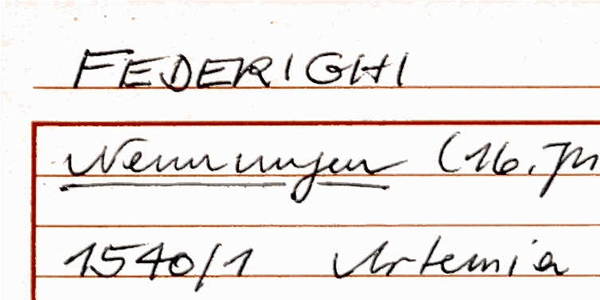 FEDERIGHI
Nennungen (16. Jh
1540/1 Artemia